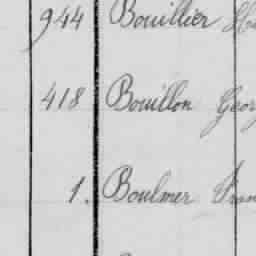 944 Bouillier
418 Bouillon Geor
1. Boulmer Fran